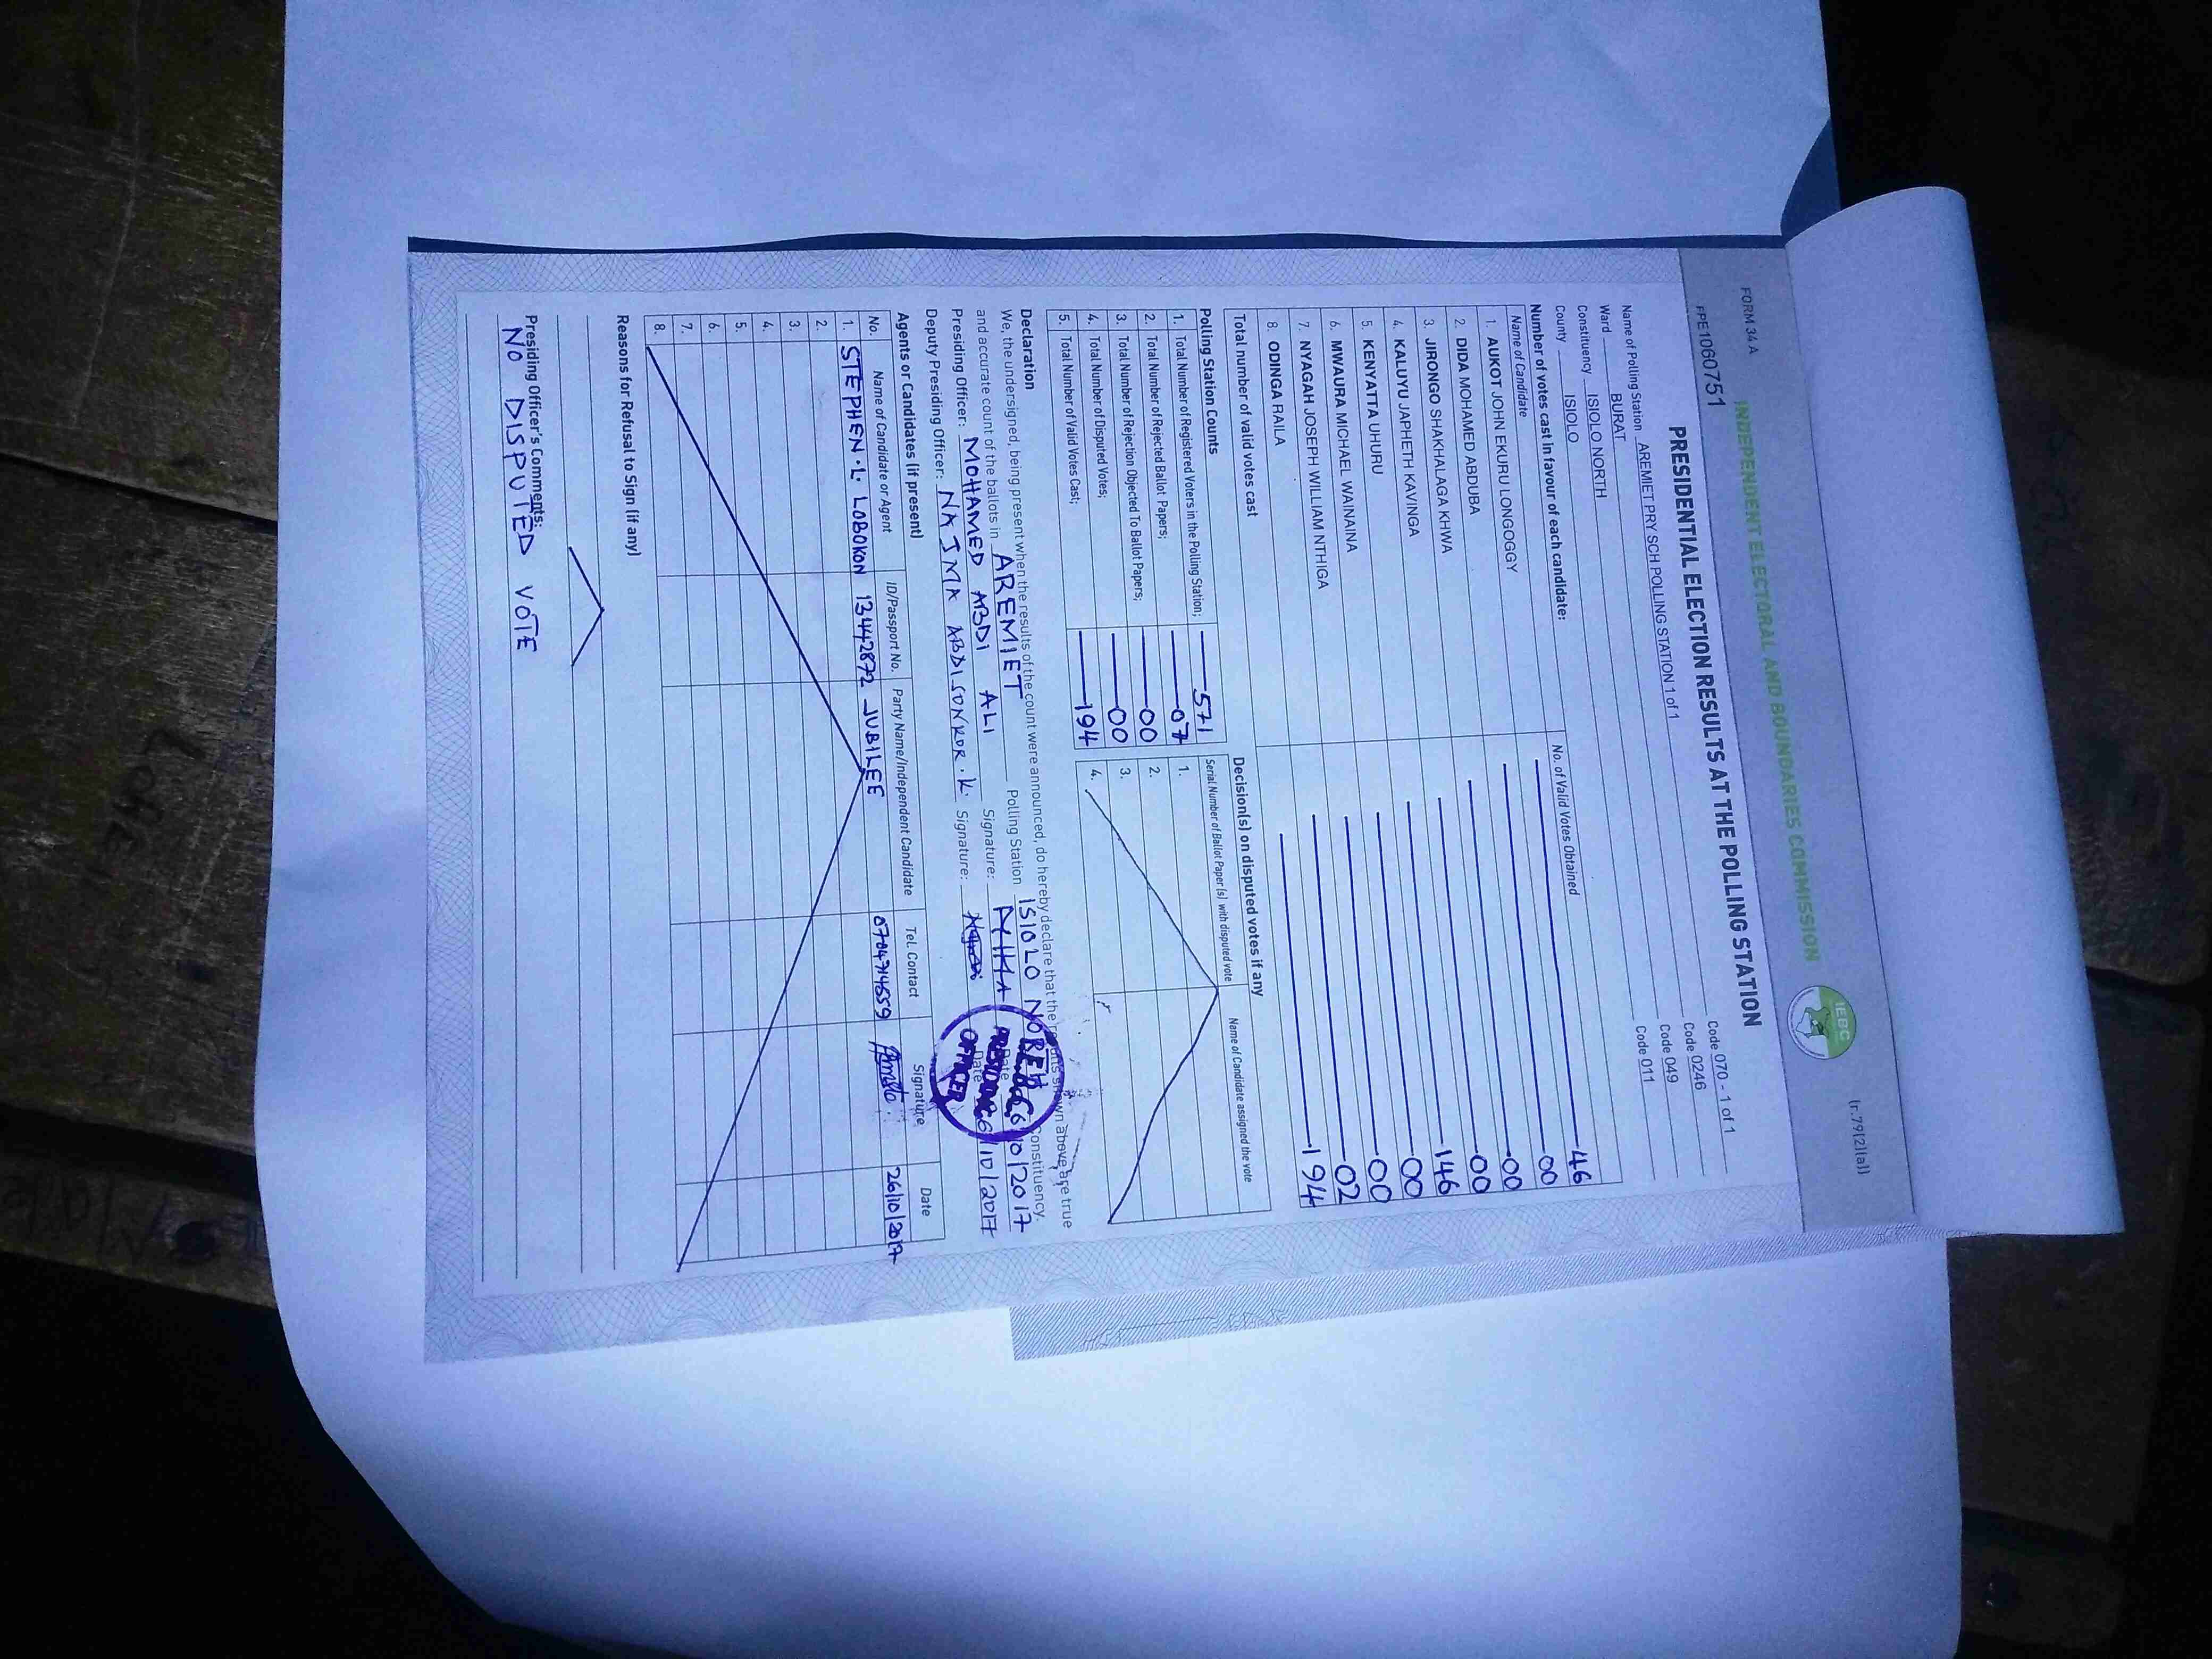 FORM 34 A
(r.79(2)(a))
INDEPENDENT ELECTORAL AND BOUNDARIES COMMISSION
IEBC
FPE1060751
PRESIDENTIAL ELECTION RESULTS AT THE POLLING STATION
Name of Polling Station AREMIET PRY SCH POLLING STATION 1 of 1 Code 070 - 1 of 1
Ward BURAT Code 0246
Constituency ISIOLO NORTH Code 049
County ISIOLO Code 011
Number of votes cast in favour of each candidate:
Name of Candidate No. of Valid Votes Obtained
1. AUKOT JOHN EKURU LONGOGGY 46
2. DIDA MOHAMED ABDUBA 00
3. JIRONGO SHAKHALAGA KHWA 00
4. KALUYU JAPHETH KAVINGA 00
5. KENYATTA UHURU 146
6. MWAURA MICHAEL WAINAINA 00
7. NYAGAH JOSEPH WILLIAM NTHIGA 00
8. ODINGA RAILA 02
Total number of valid votes cast 194
Polling Station Counts
1. Total Number of Registered Voters in the Polling Station; 571
2. Total Number of Rejected Ballot Papers; 07
3. Total Number of Rejection Objected To Ballot Papers; 00
4. Total Number of Disputed Votes; 00
5. Total Number of Valid Votes Cast; 194
Decision(s) on disputed votes if any
Serial Number of Ballot Paper (s) with disputed vote Name of Candidate assigned the vote
1.
2.
3.
4.
Declaration
We, the undersigned, being present when the results of the count were announced, do hereby declare that the results shown above are true
and accurate count of the ballots in AREMIET Polling Station ISIOLO NORTH Constituency.
Presiding Officer: MOHAMED ABDI ALI Signature: Date 26/10/2017
Deputy Presiding Officer: NAJMA ABDISONKOR.K. Signature: Date 26/10/2017
PRESIDING
OFFICER
Agents or Candidates (if present)
No. Name of Candidate or Agent ID/Passport No. Party Name/Independent Candidate Tel. Contact Signature Date
1. STEPHEN.L. LOBOKON 13442872 JUBILEE 0704714559 26/10/2017
2.
3.
4.
5.
6.
7.
8.
Reasons for Refusal to Sign (if any)
Presiding Officer's Comments:
NO DISPUTED VOTE